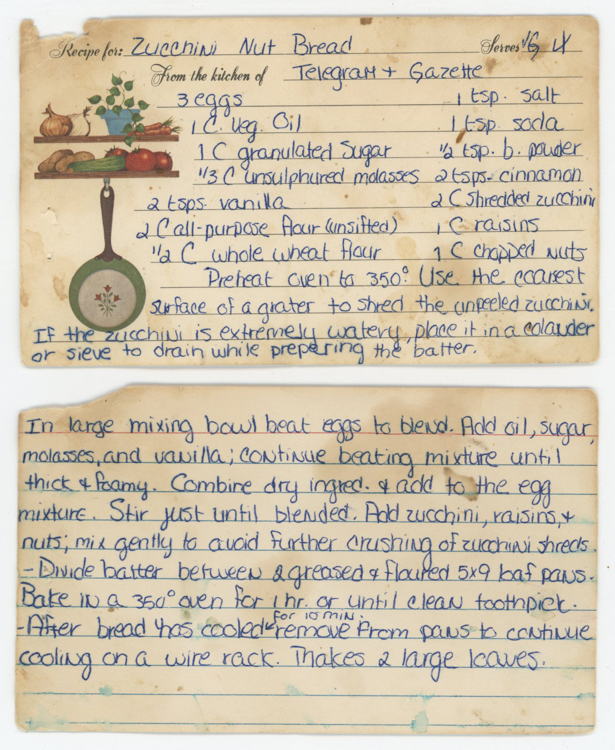 Recipe for: Zucchini Nut Bread Serves
From the kitchen of Telegram + Gazette
3 eggs 1 tsp. salt
1 C. Veg. Oil 1 tsp. soda
1 C granulated Sugar 1/2 tsp. b. powder
1/3 C unsulphured molasses 2 tsps. cinnamon
2 tsps. vanilla 2 C shredded zucchini
2 C all-purpose flour (unsifted) 1 C raisins
1/2 C whole wheat flour 1 C chopped nuts
Preheat oven to 350°. Use the coarest
surface of a grater to shred the unpeeled zucchini.
If the zucchini is extremely watery, place it in a colander
or sieve to drain while prepering the batter.
In large mixing bowl beat eggs to blend. Add oil, sugar,
molasses, and vanilla; continue beating mixture until
thick & foamy. Combine dry ingred. & add to the egg
mixture. Stir just until blended. Add zucchini, raisins, +
nuts; mix gently to avoid further crushing of zucchini shreds.
- Divide batter between 2 greased & floured 5x9 loaf pans.
Bake in a 350° oven for 1 hr. or until clean toothpick.
for 15 min.
- After bread has cooled remove from pans to continue
cooling on a wire rack. Thakes 2 large loaves.